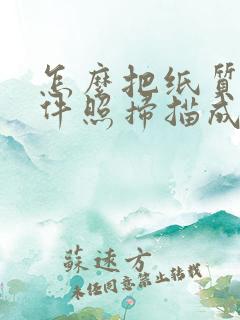 怎麼把纸質
件照掃描成
蘇遠方
未经同意禁止转载